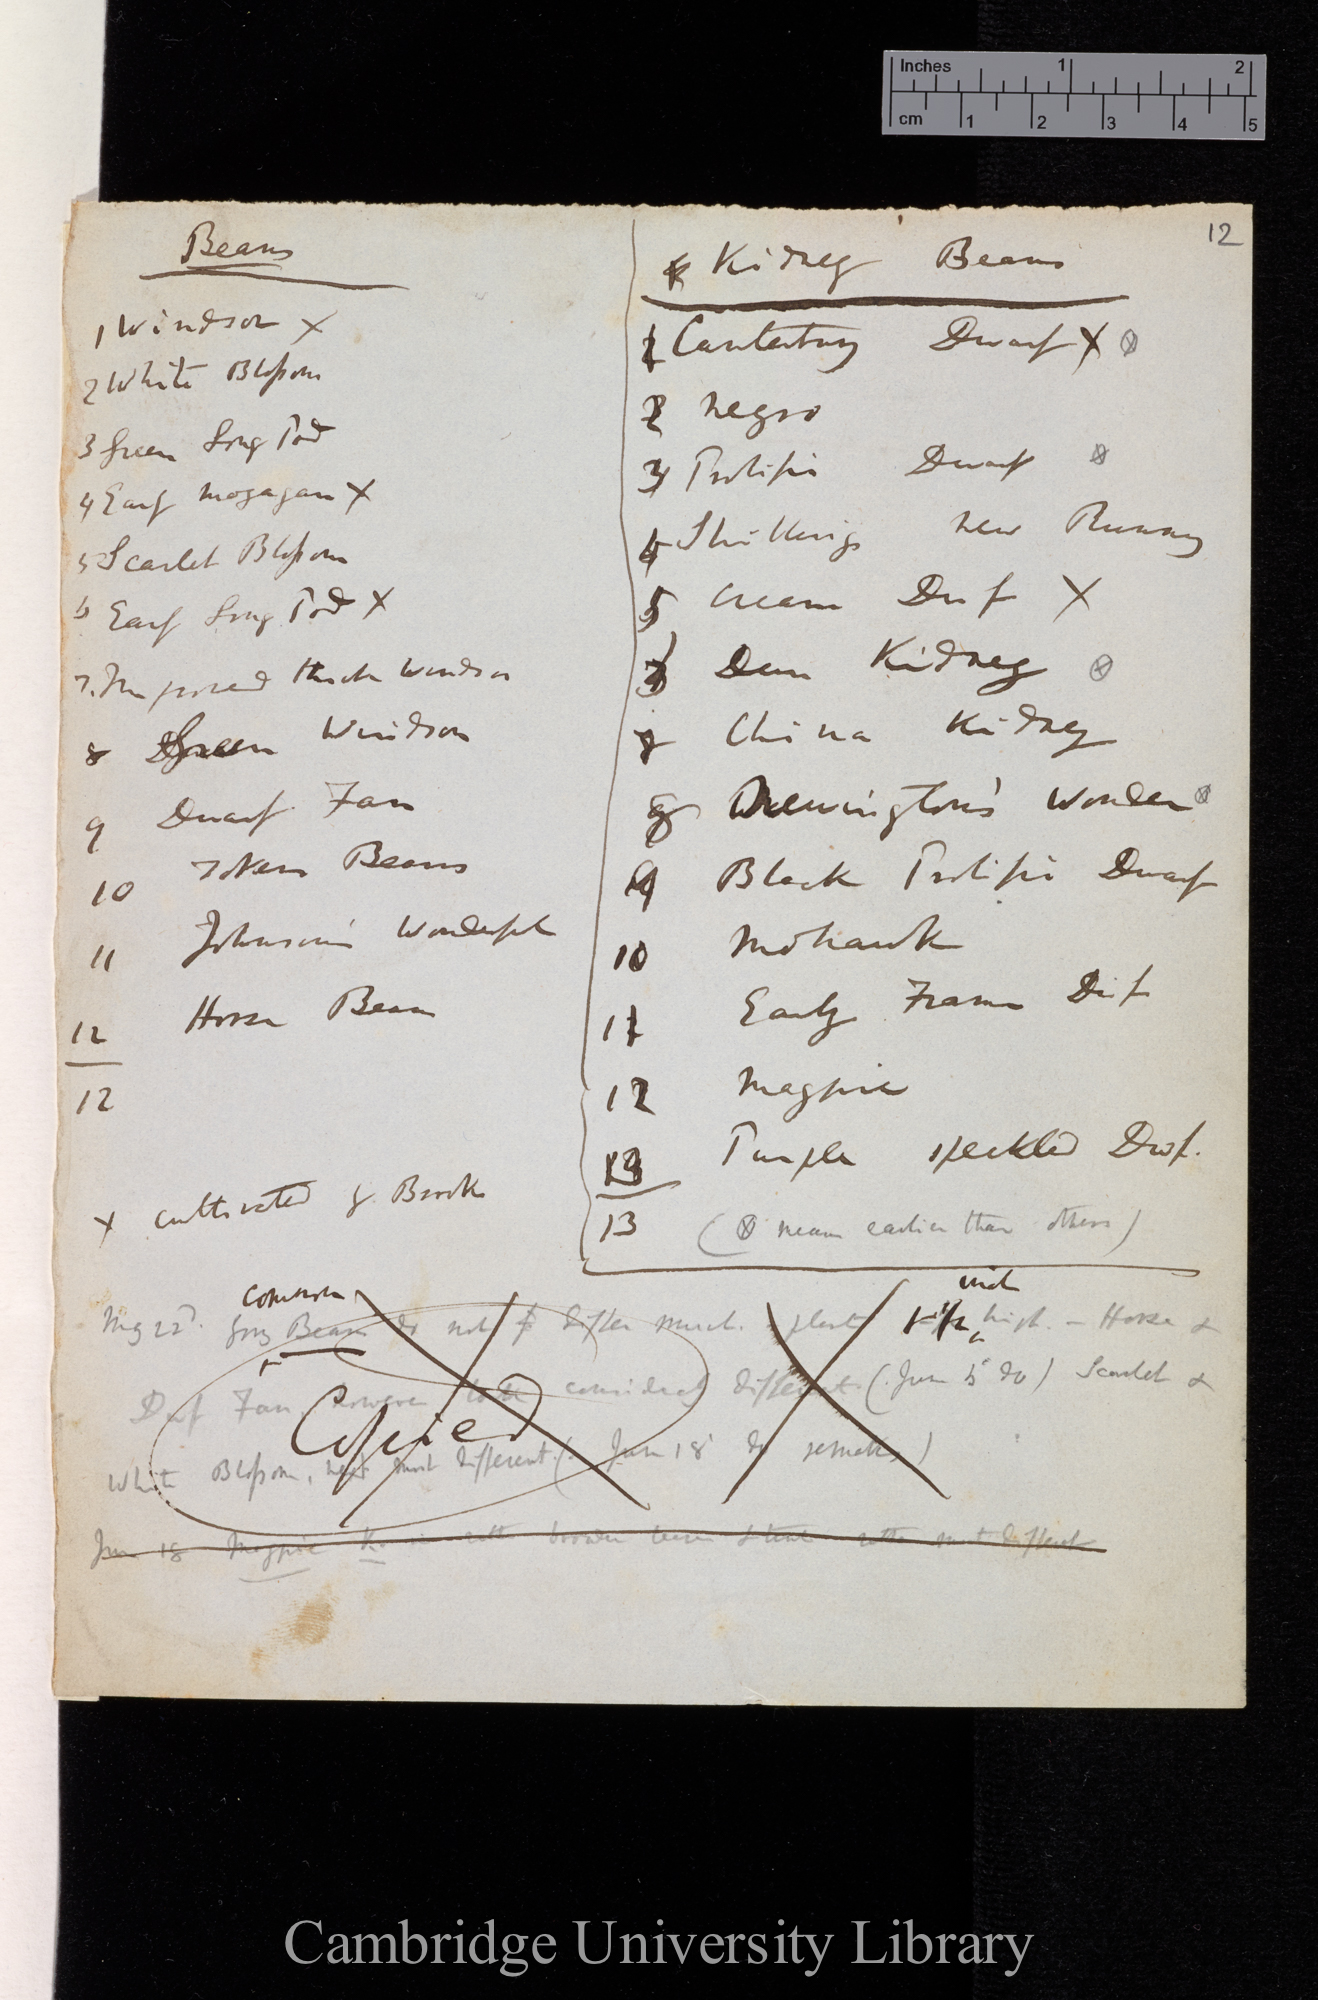 Inches 1 2
cm 1 2 3 4 5
12
Beans
1 Windsor X
2 White Blossom
3 Green Long Pod
4 Early Mazagan X
5 Scarlet Blossom
6 Early Long Pod X
7. Improved thick Windsor
8 Green Windsor
9 Dwarf Fan
10 Token Beans
11 Johnson's Wonderful
12 Horse Bean
12
X cultivated by Brooks
Kidney Beans
1 Canterbury Dwarf X ⊗
2 Negro
3 Prolific Dwarf ⊗
4 Shillings new Runner
5 Cream Dwf X
Dun Kidney ⊗
China Kidney
8 Newington's Wonder ⊗
9 Black Prolific Dwarf
10 Mohawk
11 Early Frame Dwf
12 Magpie
13 Purple speckled Dwf.
13 (⊗ means earlier than others)
common inch
May 22d. young Beans do not differ much. plants high. — Horse &
Dwf Fan, however look considerably different (June 5 do) Scarlet &
Copied
White Blossom, next most different. (June 18 do remarks)
June 18 Magpie K. broader leaves most different
Cambridge University Library